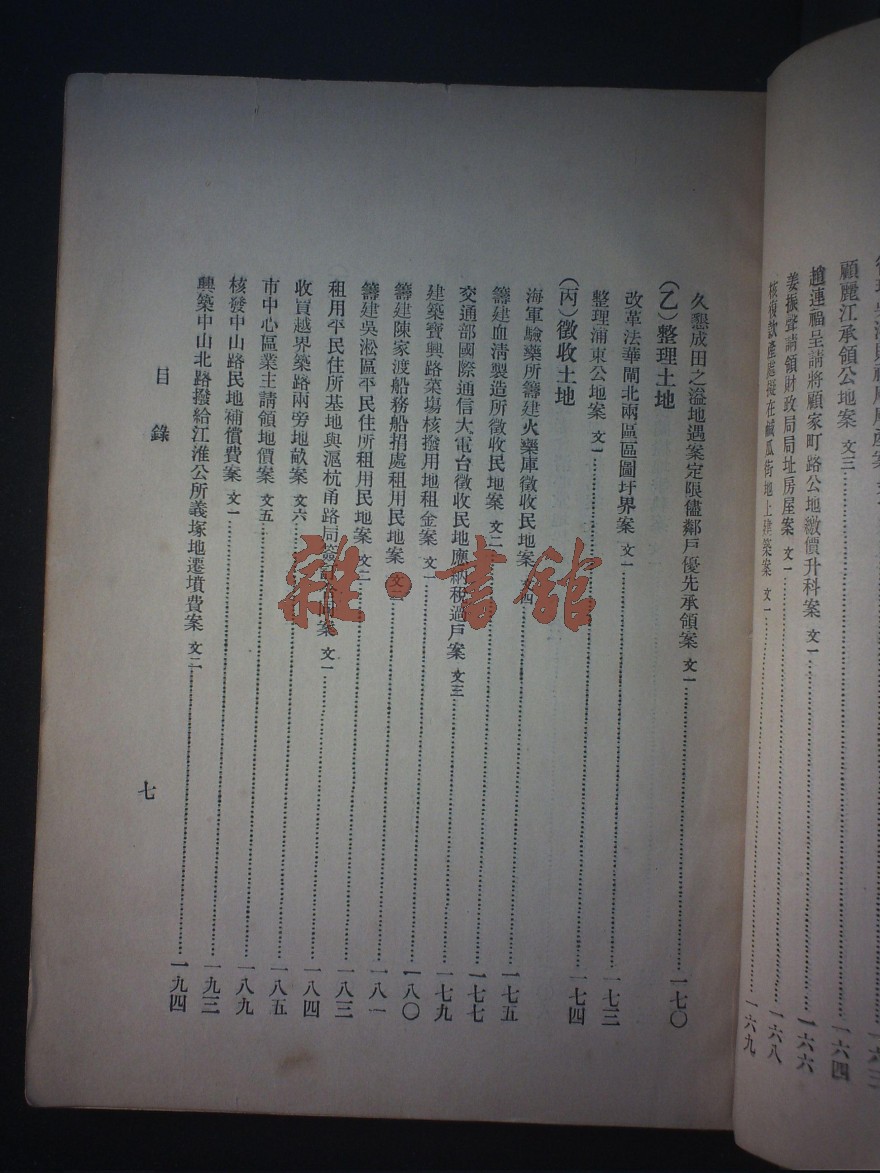 顧麗江承領公地案 文三……一六四
趙連福呈請將顧家町路公地繳價升科案 文一……一六六
姜振聲請領財政局局址房屋案 文一……一六八
產處擬在鹹瓜街地上建築案 文一……一六九
久懇成田之溢地遇案定限儘鄰戶優先承領案 文一……一七〇
(乙)整理土地
改革法華閘北兩區區圖圩界案 文一……一七三
整理浦東公地案 文一……一七四
(丙)徵收土地
海軍驗藥所籌建火藥庫徵收民地案 文四……一七五
籌建血清製造所徵收民地案 文二……一七七
交通部國際通信大電台徵收民地應納稅過戶案 文三……一七九
建築寶興路菜場核撥用地租金案 文一……一八〇
籌建陳家渡船務船捐處租用民地案 文三……一八一
籌建吳淞區平民住所租用民地案 文二……一八三
租用平民住所基地與滬杭甬路局簽訂合同案 文一……一八四
收買越界築路兩旁地畝案 文六……一八五
市中心區業主請領地價案 文五……一八九
核發中山路民地補償費案 文一……一九三
興築中山北路撥給江淮公所義塚地遷墳費案 文二……一九四
目錄
七
雜·書館